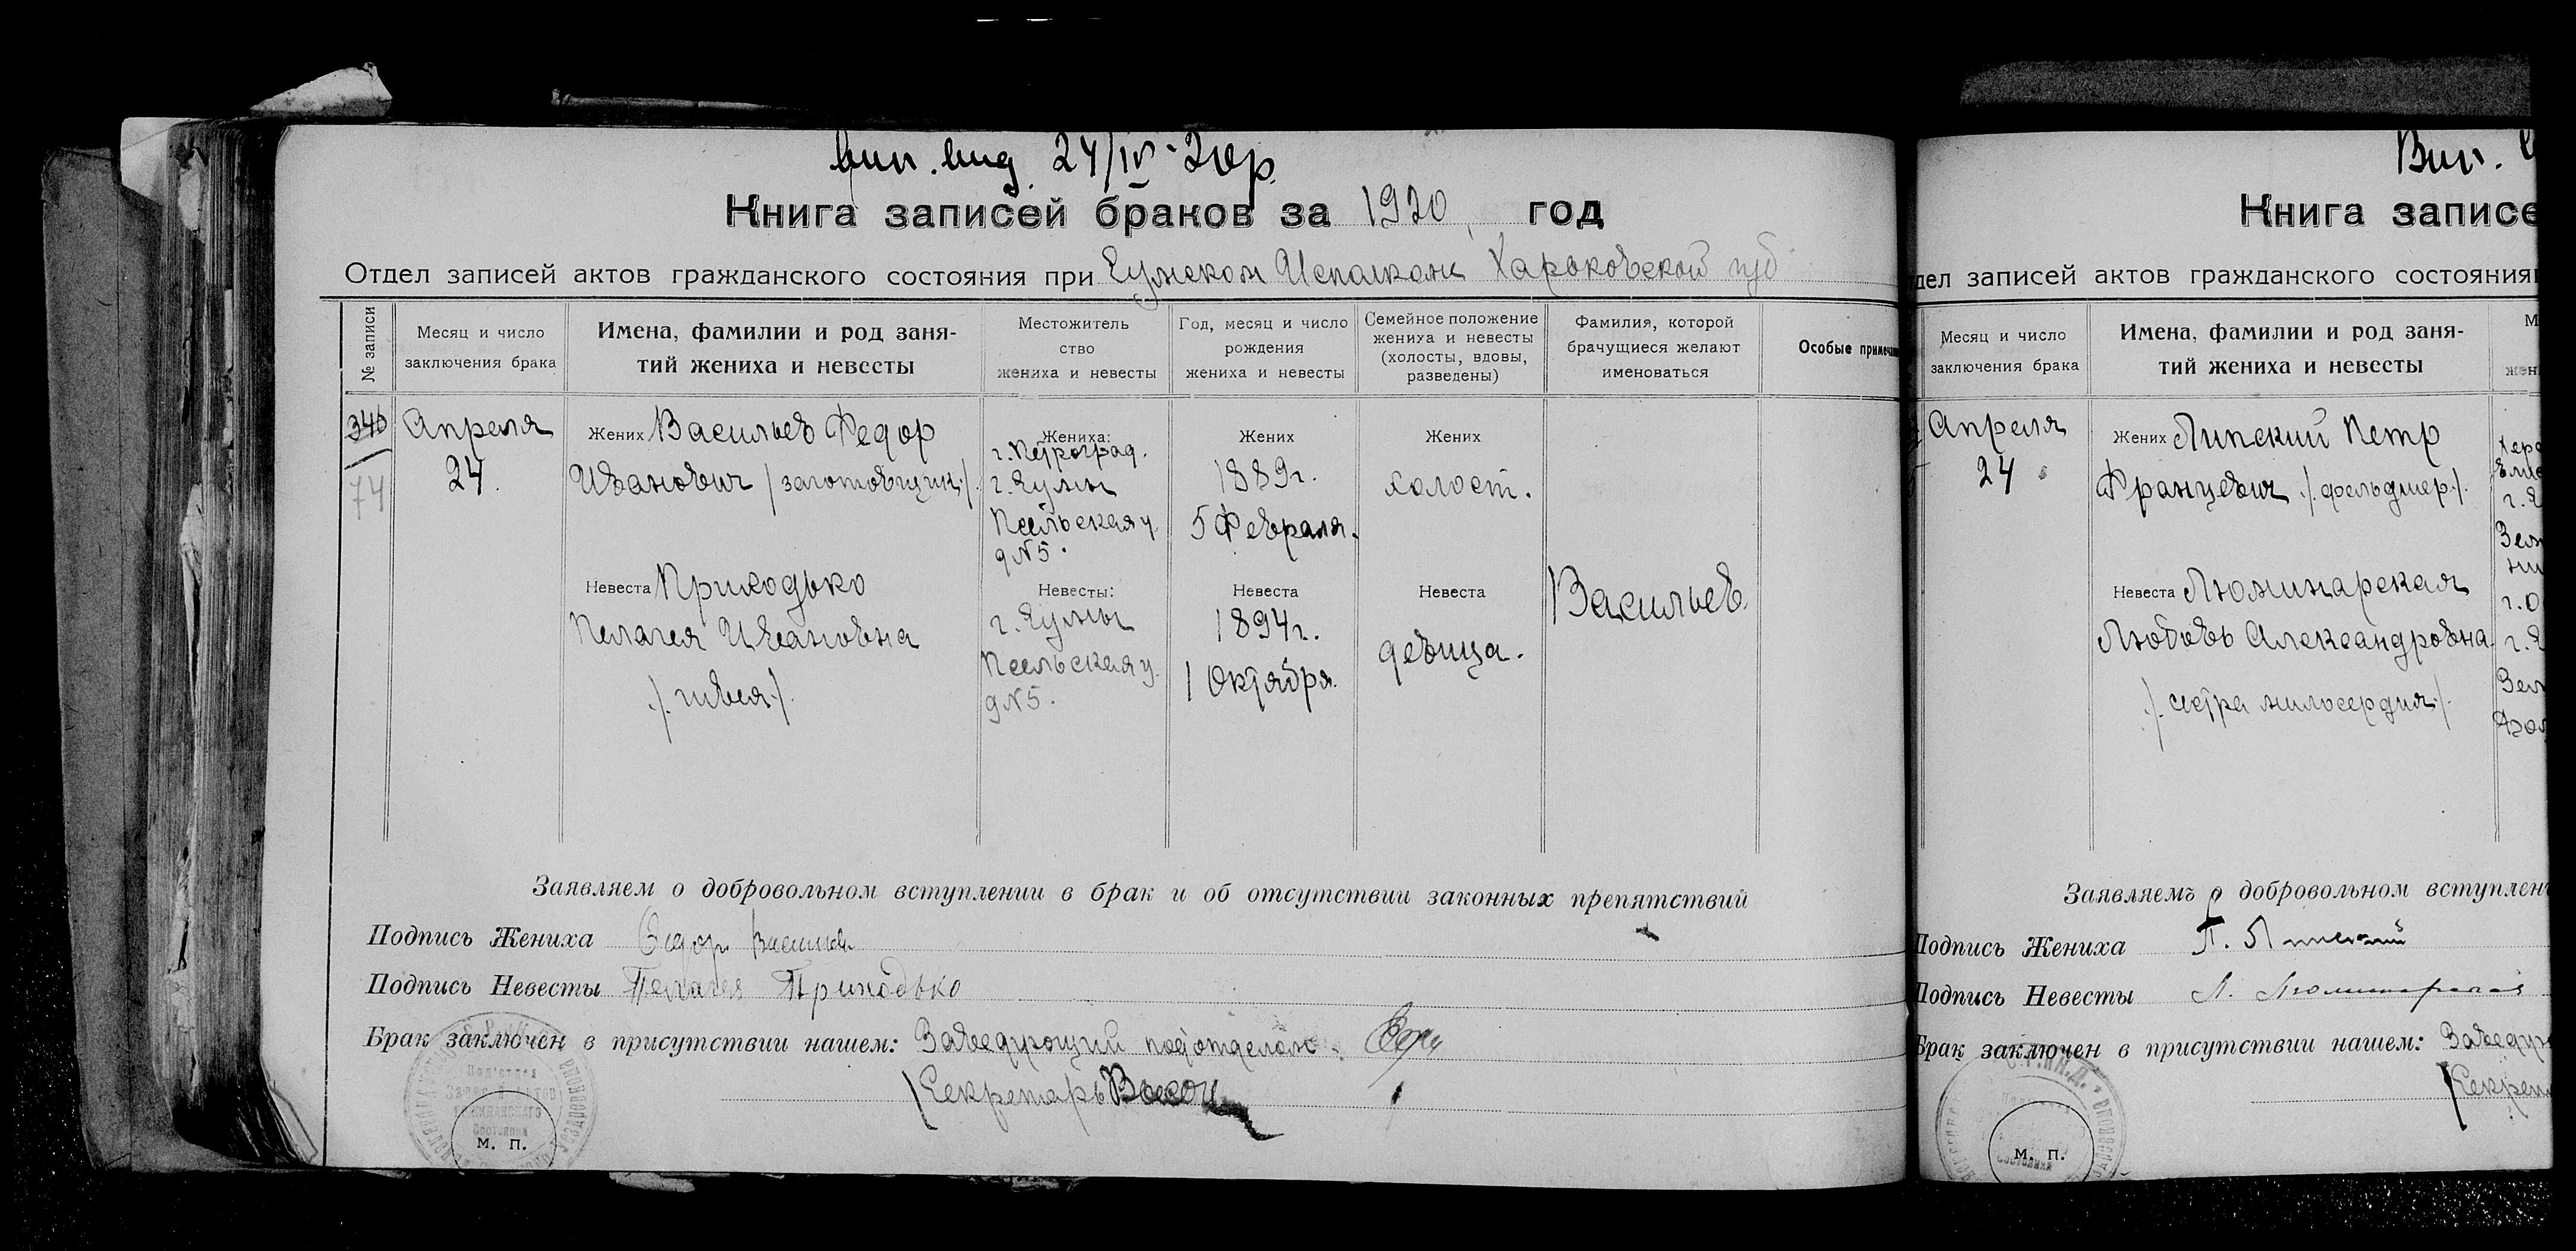 вип. вид. 24/IV-20р.
Книга записей браков за 1920 год
Отдел записей актов гражданского состояния при Сумском Исполкоме Харьковской губ
№ записи
Месяц и число
заключения брака
Имена, фамилии и род заня-
тий жениха и невесты
Местожитель
ство
жениха и невесты
Год, месяц и число
рождения
жениха и невесты
Семейное положение
жениха и невесты
(холосты, вдовы,
разведены)
Фамилия, которой
брачущиеся желают
именоваться
Особые примечан
74
Апреля
24.
Жених Васильев Федор
Иванович /заготовщик/.
Жениха:
г. Петроград.
г. Сумы
Псельская у
д N 5.
Жених
1889 г.
5 Февраля.
Жених
холост.
Невеста Приходько
Пелагея Ивановна
./. швея ./.
Невесты:
г. Сумы
Псельская у.
д N 5.
Невеста
1894 г.
1 Октября.
Невеста
девица.
Васильев.
Заявляем о добровольном вступлении в брак и об отсутствии законных препятствий
Подпись Жениха Федор Васильев
Подпись Невесты Пелагея Приходько
Брак заключен в присутствии нашем: Заведующий подотделом:
Секретарь
М. П.
Вип.
Книга записе
тдел записей актов гражданского состояния
Месяц и число
заключения брака
Имена, фамилии и род заня-
тий жениха и невесты
М
жен
Апреля
24
Жених Липский Петр
Францевич ./. фельдшер ./.
Невеста Люминарская
Любовь Александровна
./. сестра милосердия ./.
Заявляемъ о добровольном вступлен
Подпись Жениха П. Липский
Подпись Невесты Л. Люминарская
Брак заключен в присутствии нашем: Заведую
Секрет
М. П.